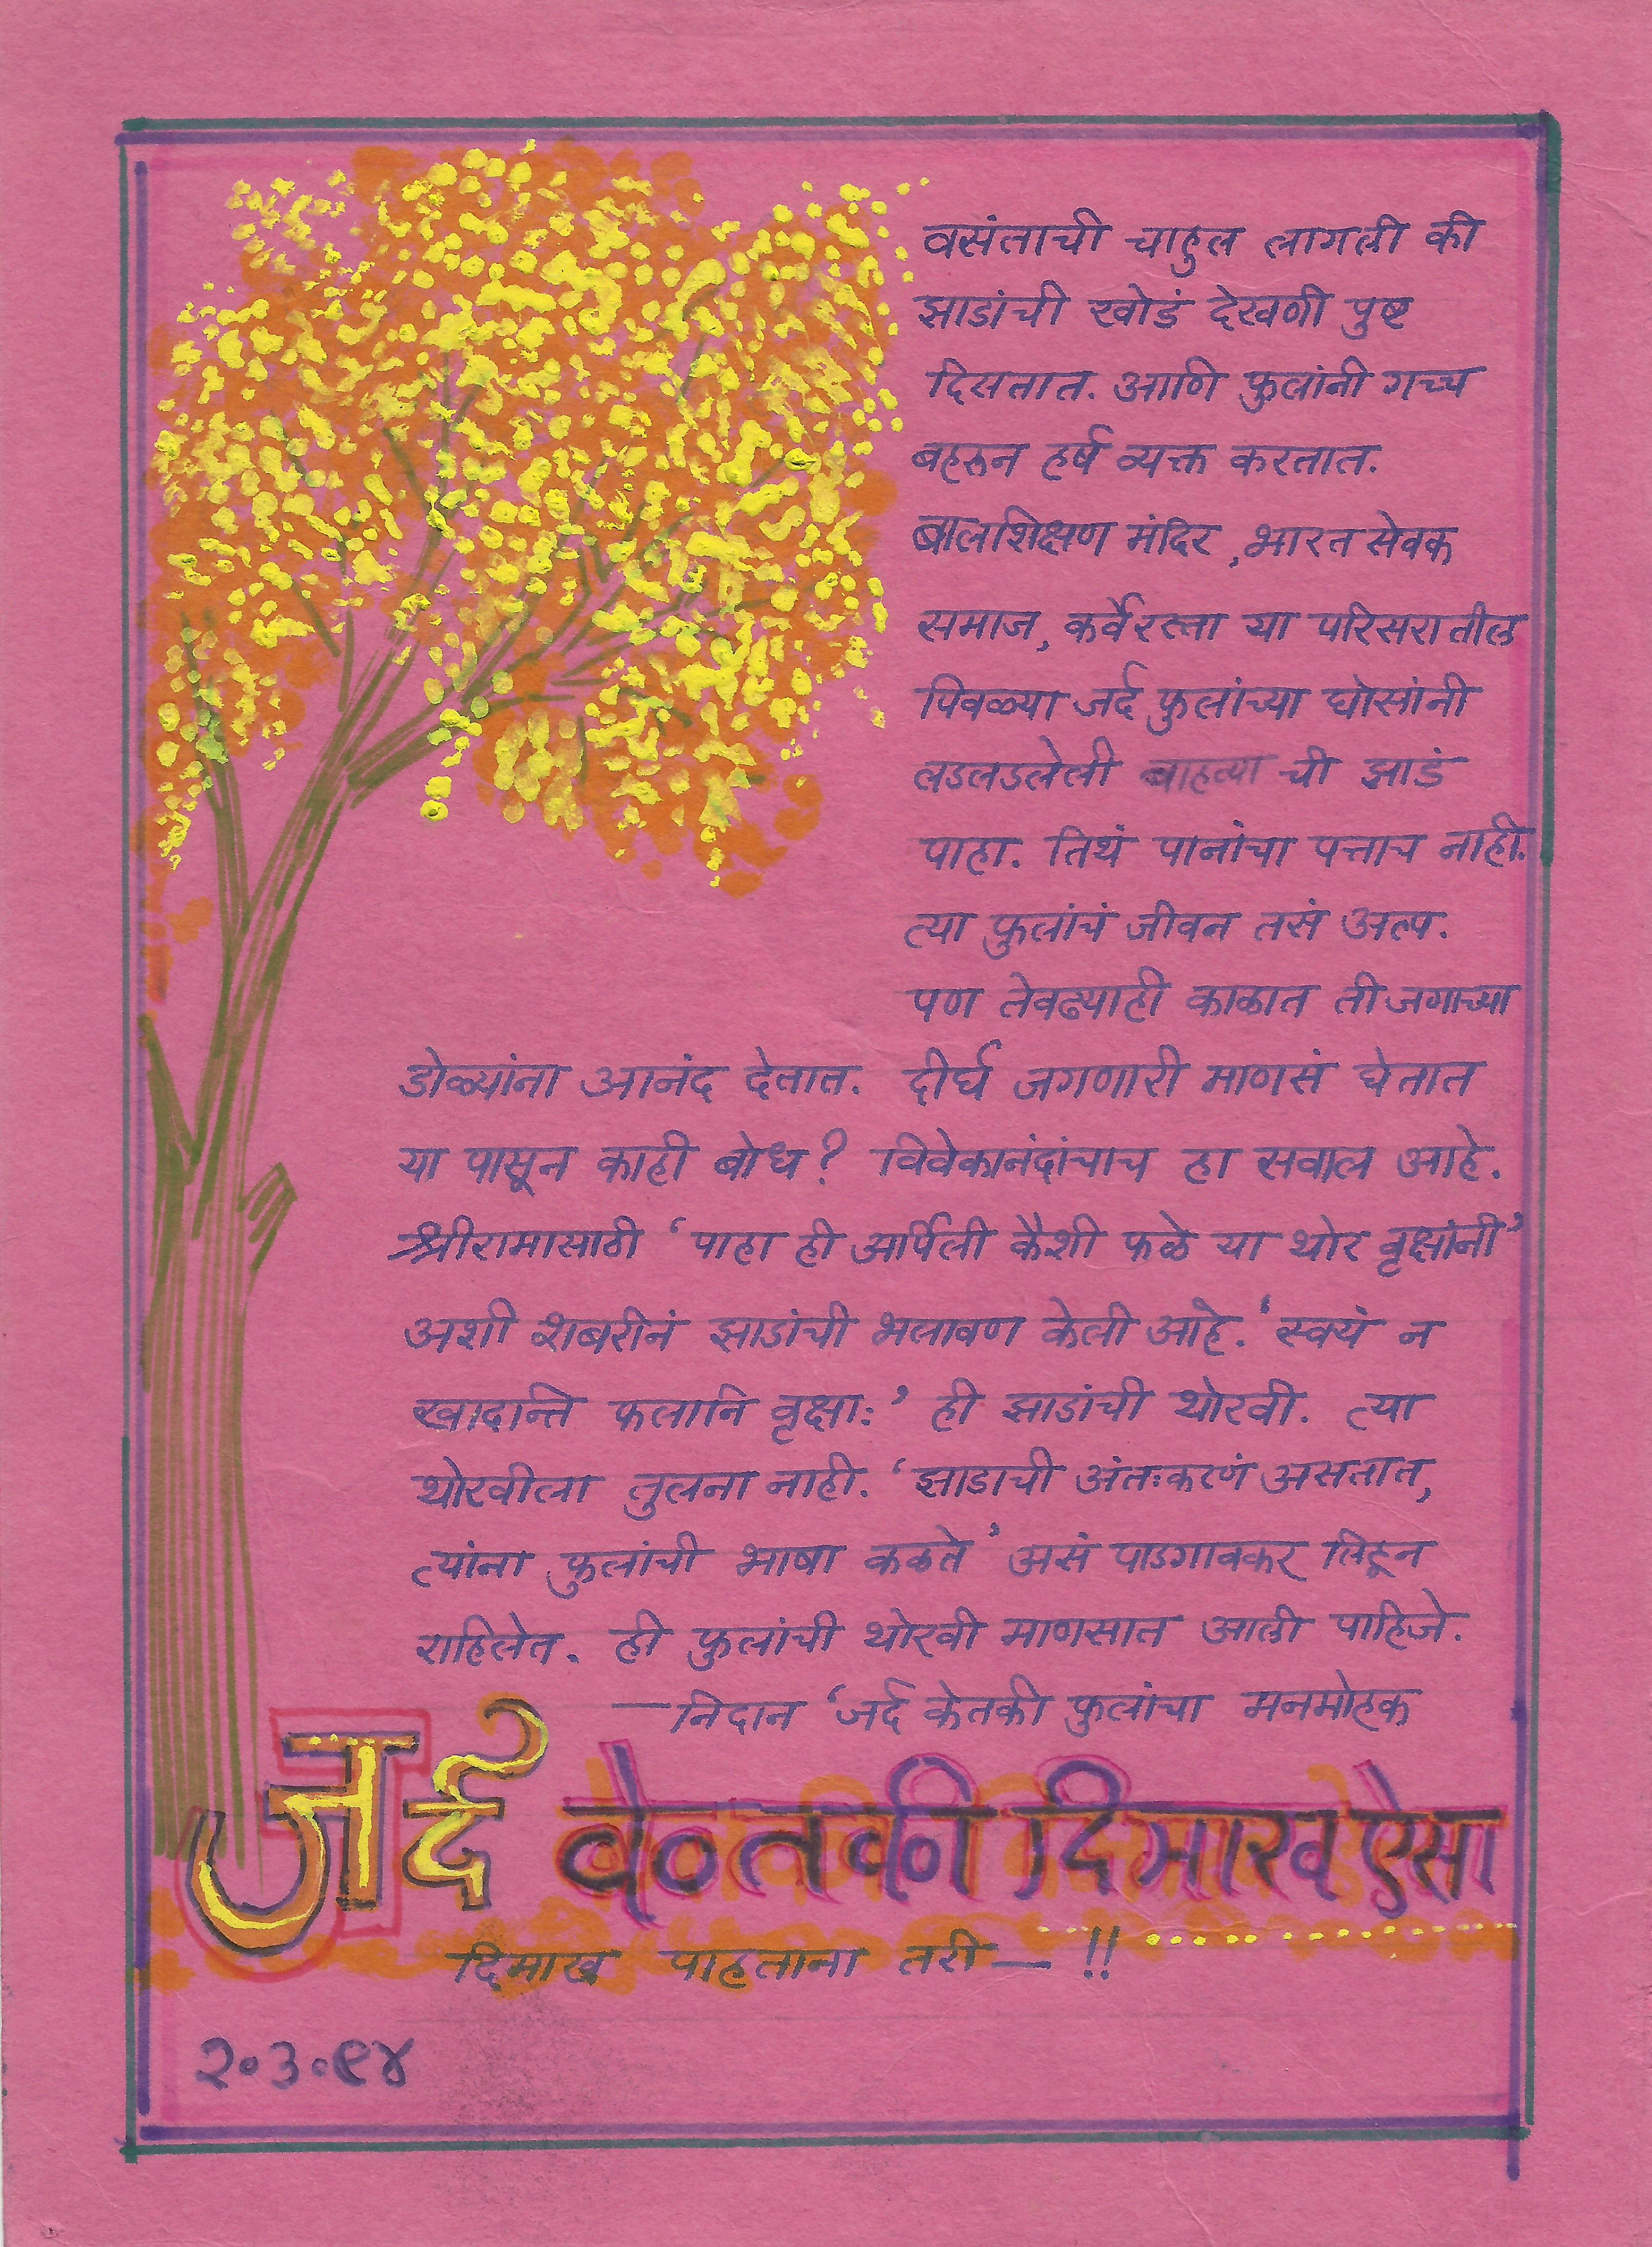 वसंताची चाहुल लागली की
झाडांची खोडं देखणी पुष्ट
दिसतात. आणि फुलांनी गच्च
बहरून हर्ष व्यक्त करतात.
बालशिक्षण मंदिर, भारत सेवक
समाज, कर्वेरस्ता या परिसरातील
पिवळ्या जर्द फुलांच्या घोसांनी
लडलडलेली बाहव्या ची झाडं
पाहा. तिथं पानांचा पत्ताच नाही.
त्या फुलांचं जीवन तसं अल्प.
पण तेवढ्याही काळात ती जगाच्या
डोळ्यांना आनंद देतात. दीर्घ जगणारी माणसं घेतात
या पासून काही बोध? विवेकानंदांचाच हा सवाल आहे.
श्रीरामासाठी ‘पाहा ही अर्पिली कैशी फळे या थोर वृक्षांनी’
अशी शबरीनं झाडांची भलावण केली आहे. ‘स्वयं न
खादन्ति फलानि वृक्षाः’ ही झाडांची थोरवी. त्या
थोरवीला तुलना नाही. ‘झाडाची अंतःकरणं असतात,
त्यांना फुलांची भाषा कळते’ असं पाडगावकर लिहून
राहिलेत. ही फुलांची थोरवी माणसात आली पाहिजे.
—निदान ‘जर्द केतकी फुलांचा मनमोहक
जर्द केतकी दिमाख ऐसा
दिमाख पाहताना तरी — !!
२.३.९४